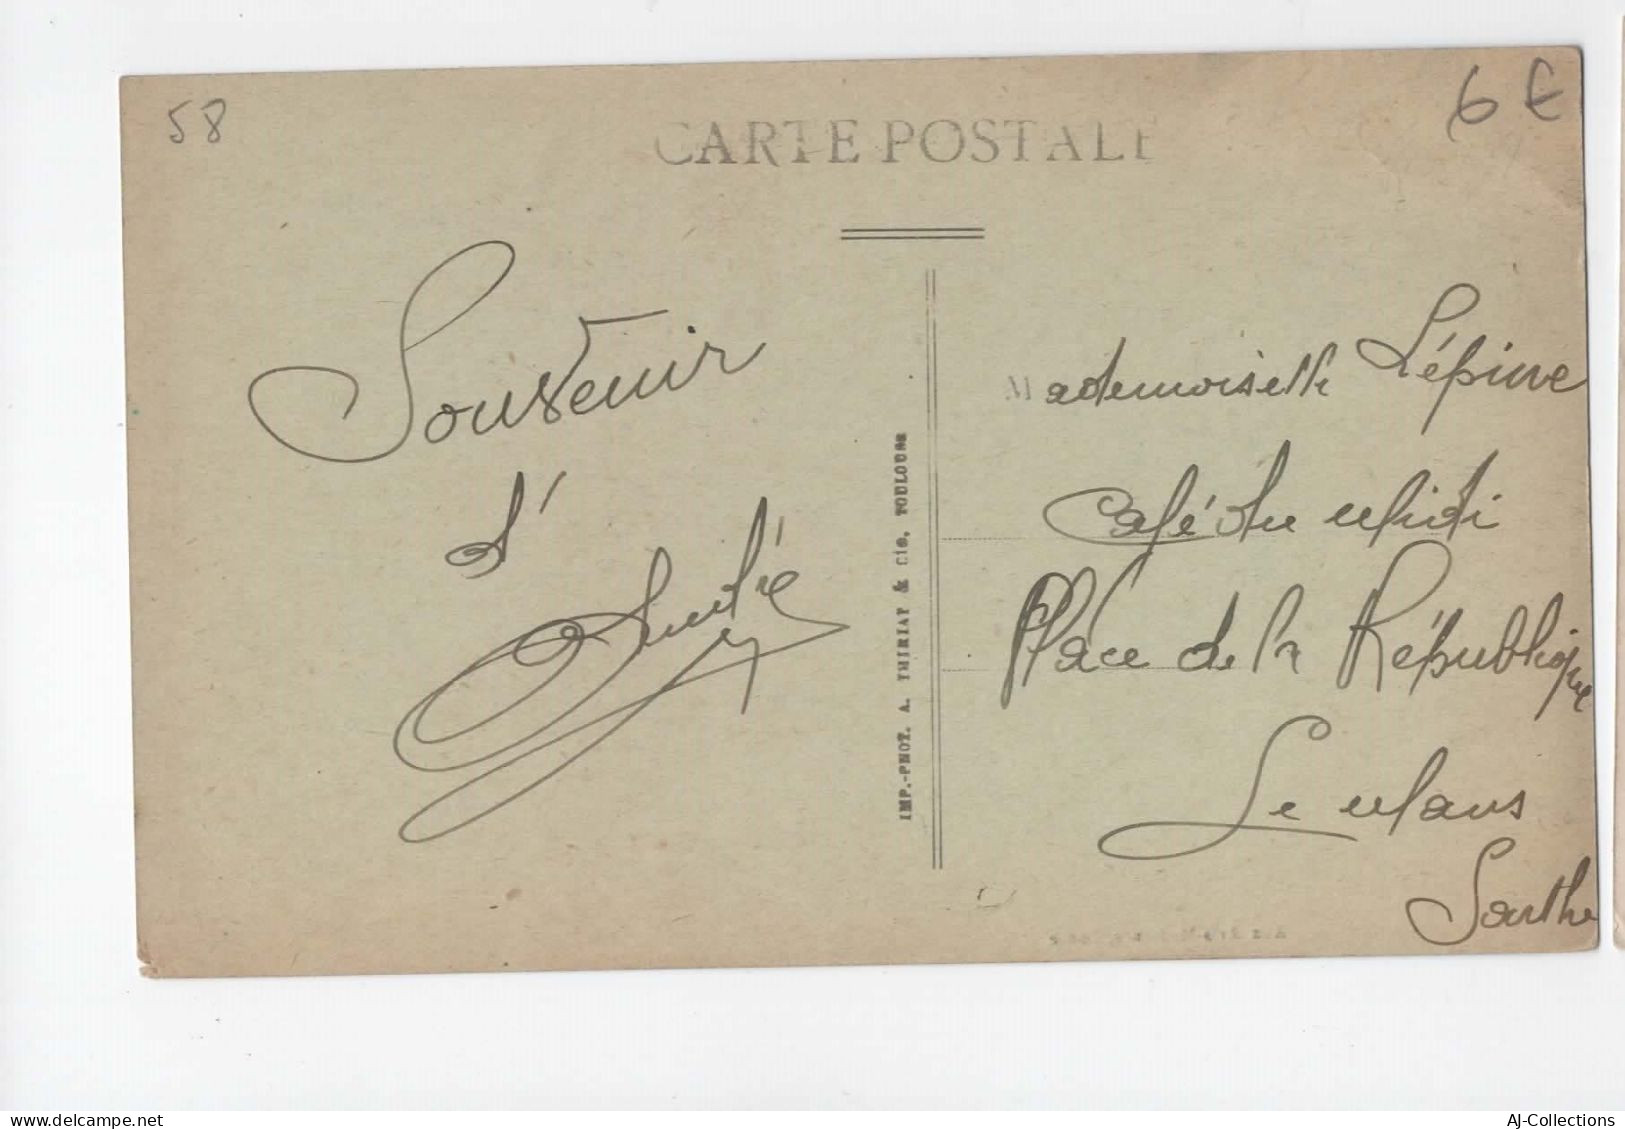 58
6 €
CARTE POSTALE
Souvenir
d'
André
IMP.-PHOT. A. THIRIAT & Cie, TOULOUSE
Mademoiselle Lépine
Café du Midi
Place de la République
Le Mans
Sarthe
www.delcampe.net
AJ-Collections